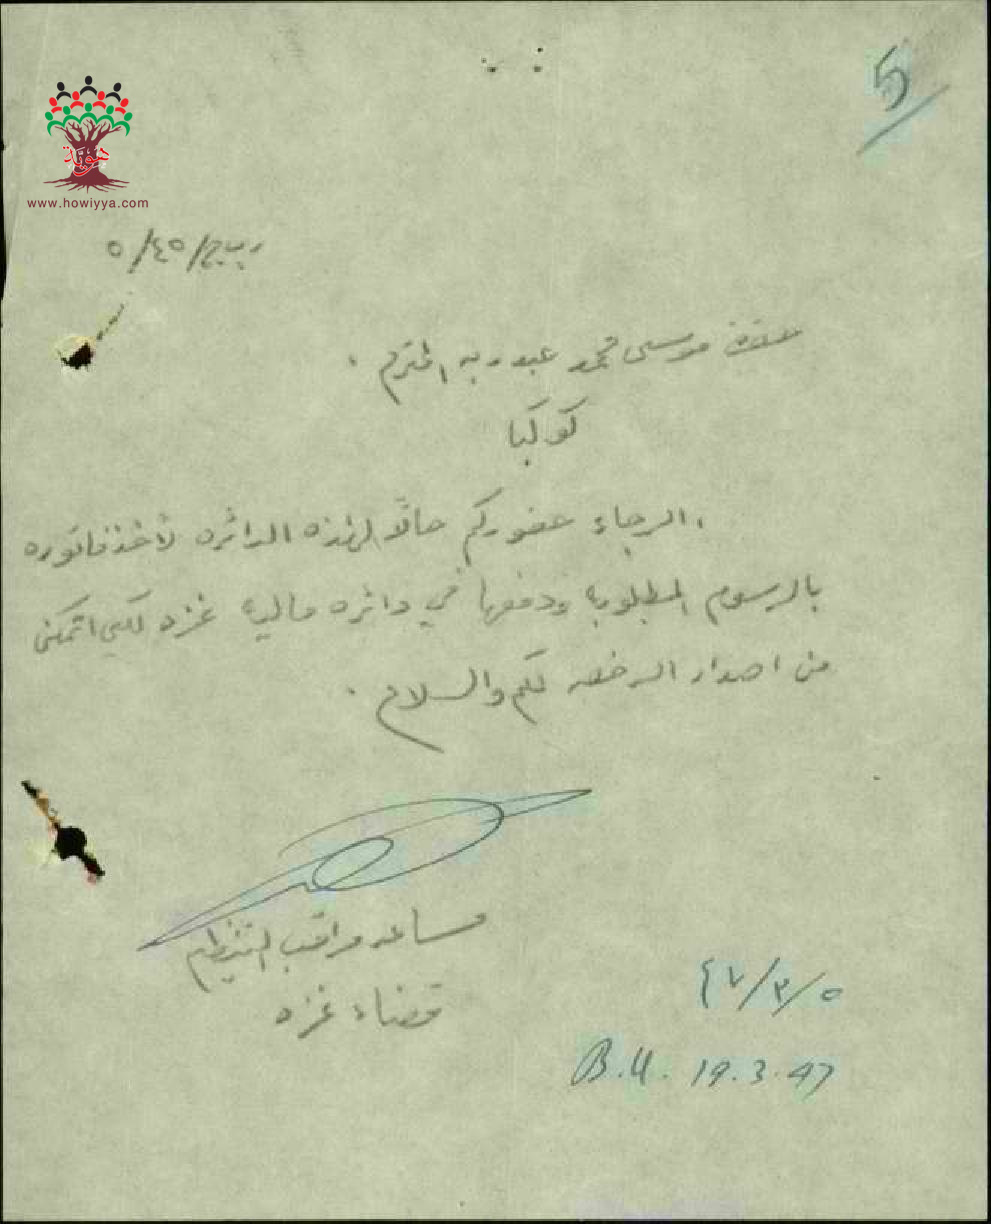 5
هوية
www.howiyya.com
ر ب ج/٤٥/٥
حضرة موسى محمد عبد ربه المحترم .
كوكبا
الرجاء حضوركم حالاً لهذه الدائره لأخذ فاتوره
بالرسوم المطلوبه ودفعها في دائره ماليه غزه لكي اتمكن
من اصدار الرخصه لكم والسلام .
مساعد مراقب التنظيم
قضاء غزه
٤٧/٣/٥
B.U. 19.3.47